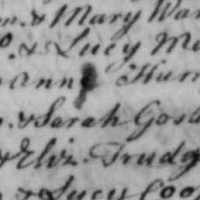 m. & Mary War
o. & Lucy Ma
Anne Hum
& Sarah Gos
& Eliz. Trudg
& Lucy Coo